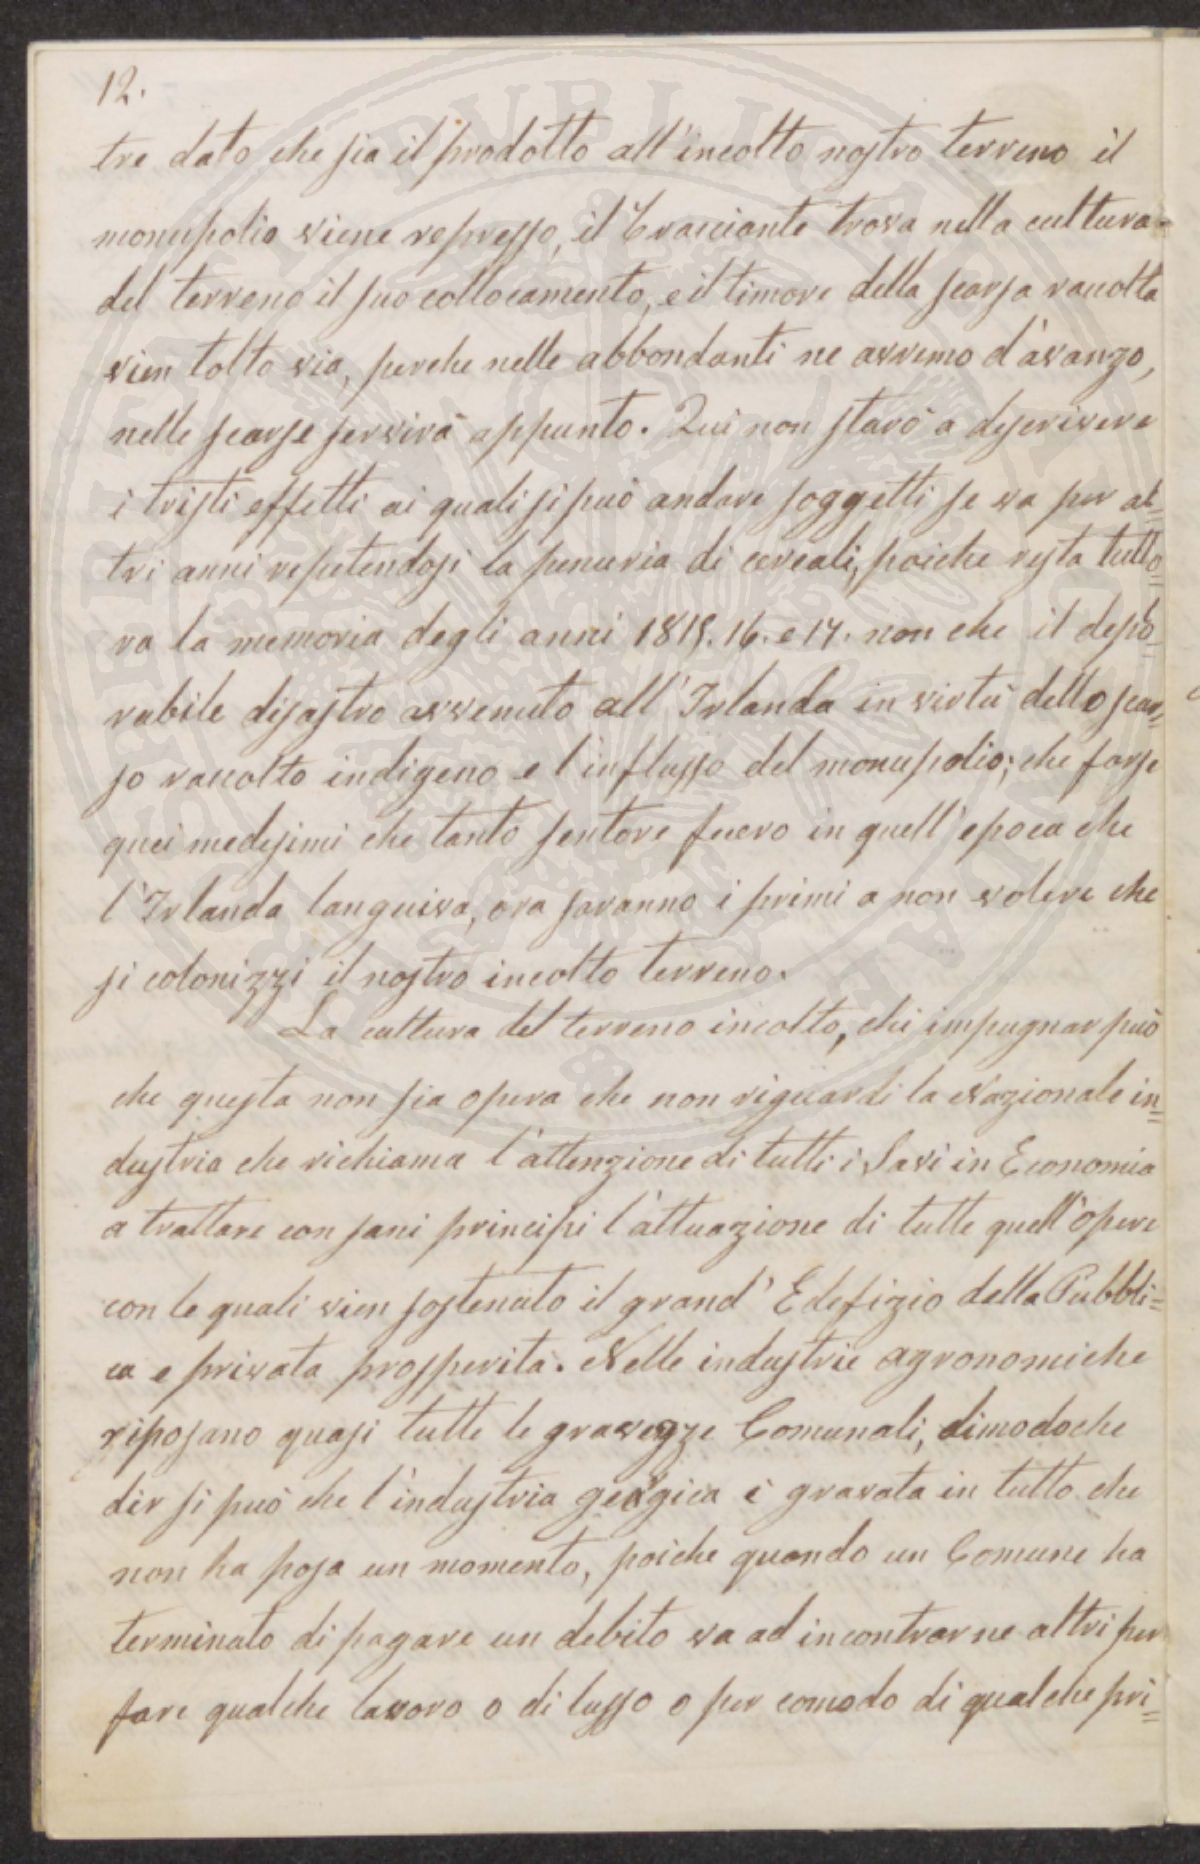 12.
tre dato che sia il prodotto all'incolto nostro terreno il
monupolio viene represso, il bracciante trova nella cultura=
del terreno il suo collocamento, e il timore della scarsa raccolta
vien tolto via, perche nelle abbondanti ne avremo d'avanzo,
nelle scarse servirà appunto. Qui non starò a descrivere
i tristi effetti ai quali si può andare soggetti se va per al=
tri anni repetendosi la penuria di cereali, poiche resta tutto=
ra la memoria degli anni 1815. 16. e 17. non che il deplo=
rabile disastro avvenuto all'Irlanda in virtù dello scar=
so raccolto indigeno e l'influsso del monupolio; che forse
quei medesimi che tanto sentore fuero in quell'epoca che
l'Irlanda languiva, ora saranno i primi a non volere che
si colonizzi il nostro incolto terreno.
La cultura del terreno incolto, chi impugnar può
che questa non sia opera che non riguardi la Nazionale in=
dustria che richiama l'attenzione di tutti i Savi in Economia
a trattare con sani principi l'attuazione di tutte quell'opere
con le quali vien sostenuto il grand'Edefizio della Pubbli=
ca e privata prosperità. Nelle industrie agronomiche
riposano quasi tutte le gravezze Comunali, dimodoche
dir si può che l'industria georgica è gravata in tutto che
non ha posa un momento, poiche quando un Comune ha
terminato di pagare un debito va ad incontrarne altri per
fare qualche lavoro o di lusso o per comodo di qualche pri=